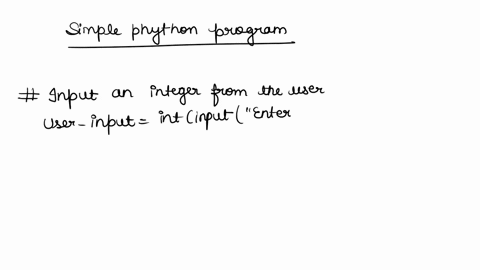 Simple phython program
# Input an integer from the user
user_input = int(input("Enter